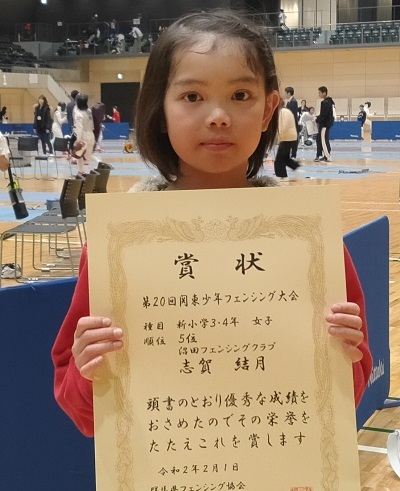 賞状
第20回関東少年フェンシング大会
種目 新小学3・4年 女子
順位 5位
沼田フェンシングクラブ
志賀 結月
頭書のとおり優秀な成績を
おさめたのでその栄誉を
たたえこれを賞します
令和2年2月1日
群馬県フェンシング協会